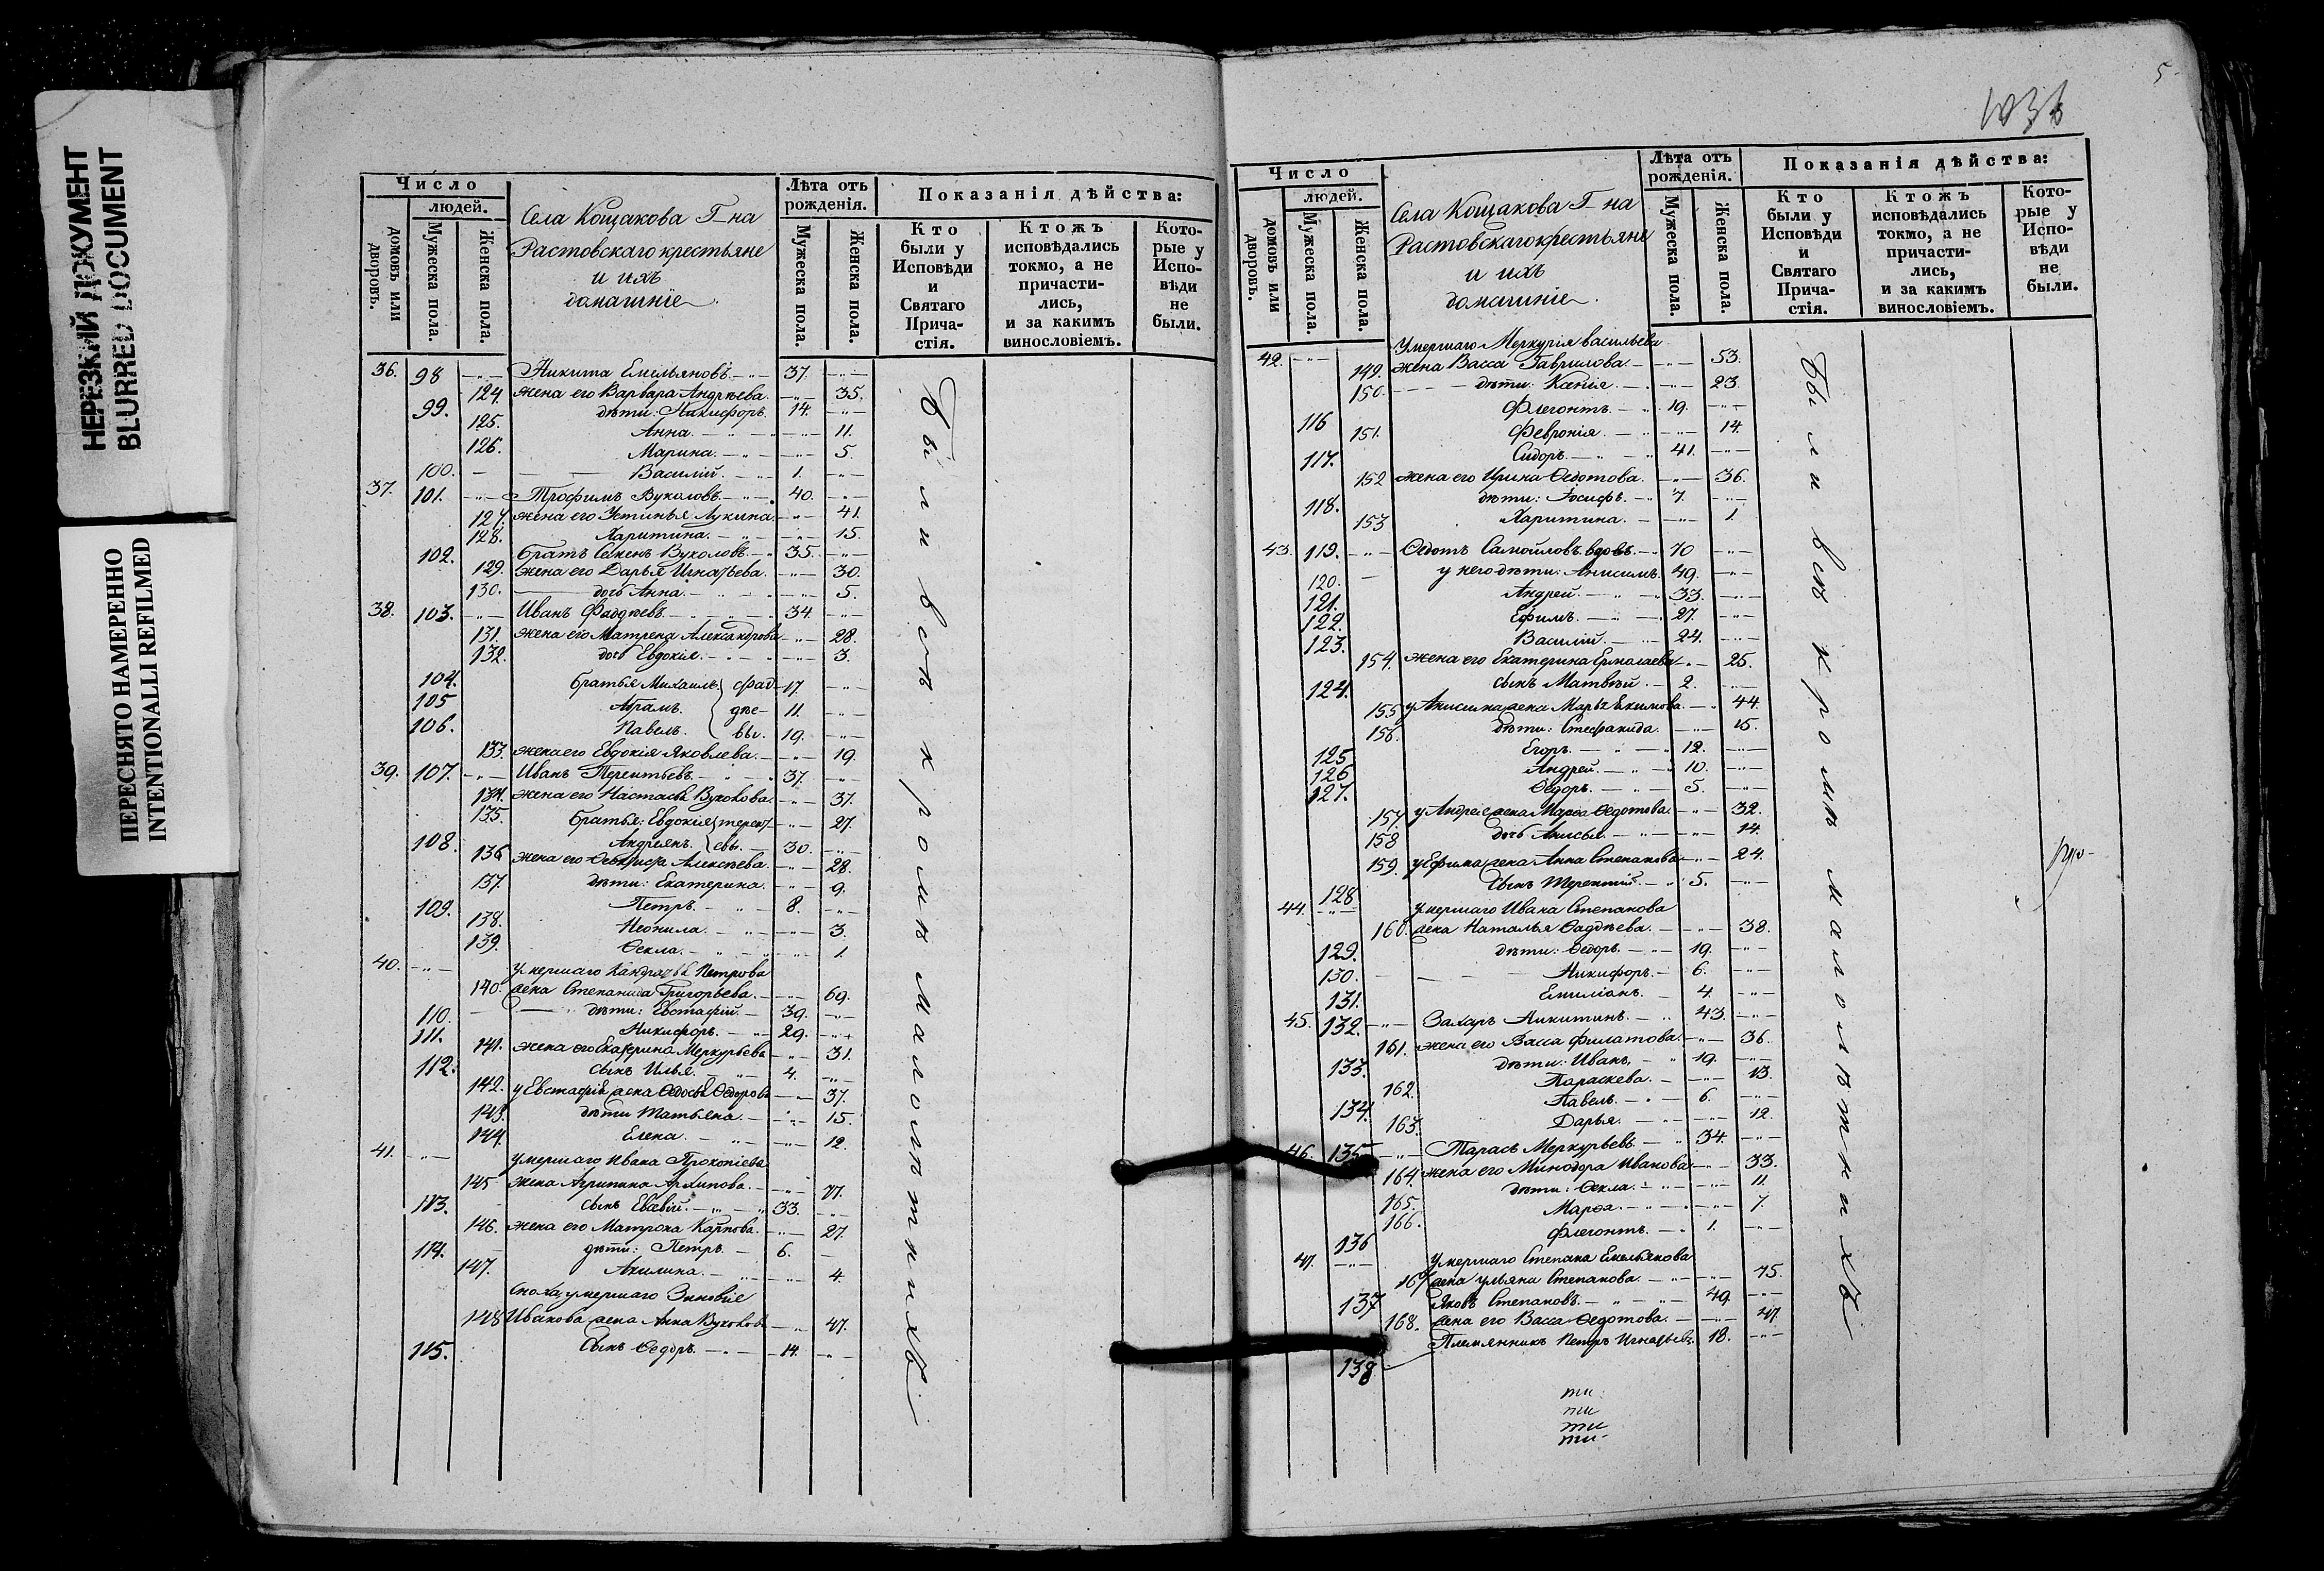 НЕРЕЗКИЙ ДОКУМЕНТ
BLURRED DOCUMENT
ПЕРЕСНЯТО НАМЕРЕННО
INTENTIONALLI REFILMED
Число
людей.
домовъ или дворовъ.
Мужеска пола.
Женска пола.
Села Кощакова Г-на
Растовскаго крестьяне
и ихъ
домашніе.
Лѣта отъ рожденія.
Мужеска пола.
Женска пола.
Показанія дѣйства:
Кто были у Исповѣди и Святаго Причастія.
Ктожъ исповѣдались токмо, а не причастились, и за какимъ винословіемъ.
Которые у Исповѣди не были.
36. 98 Никита Емельяновъ 37.
124. жена его Варвара Андрѣева 35.
99. дѣти: Никифоръ 14.
125. Анна 11.
126. Марина 5.
100. Василій 1.
37. 101. Трофимъ Вуколовъ 40.
127. жена его Устинья Лукина 41.
128. Харитина 15.
102. братъ Семенъ Вуколовъ 35.
129. жена его Дарья Игнатьева 30.
130. дочь Анна 5.
38. 103. Иванъ Фаддѣевъ 34.
131. жена его Матрена Александрова 28.
132. дочь Евдокія 3.
104. братья Михаилъ Фад- 17.
105 Абрамъ дѣе- 11.
106. Павелъ вы. 19.
133. жена его Евдокія Яковлева 19.
39. 107. Иванъ Терентьевъ 37.
134. жена его Настасья Вуколова 37.
135. братья: Евдокія терент 27.
108. Андреянъ евы. 30.
136 жена его Алексѣева 28.
137. дѣти: Екатерина 9.
109. Петръ 8.
138. Неонила 3.
139. Ѳекла 1.
40. умершаго Кандратья Петрова
140. жена Степанида Григорьева 69.
110. дѣти: Евстафій 39.
111. Никифоръ 29.
141. жена его Екатерина Меркурьева 31.
112. сынъ Илья 4.
142. у Евстафія жена Ѳедосья Ѳедорова 37.
143. дѣти Татьяна 15.
144. Елена 12.
41. умершаго Ивана Прокопіева
145 жена Агрипина Архипова 77.
113. сынъ Евсевій 33.
146. жена его Матрона Карпова 27.
114. дѣти: Петръ 6.
147. Акилина 4.
сноха умершаго Зиновіе
148 Иванова жена Анна Вуколова 47.
115. Сынъ Ѳедоръ 14.
Были всѣ кромѣ малолѣтнихъ
5
Число
людей.
домовъ или дворовъ.
Мужеска пола.
Женска пола.
Села Кощакова Г-на
Растовскаго крестьяне
и ихъ
домашніе.
Лѣта отъ рожденія.
Мужеска пола.
Женска пола.
Показанія дѣйства:
Кто были у Исповѣди и Святаго Причастія.
Ктожъ исповѣдались токмо, а не причастились, и за какимъ винословіемъ.
Которые у Исповѣди не были.
42. Умершаго Меркурія Васильева
149. жена Васса Гаврилова 53.
150. дѣти: Ксенія 23.
116 Флегонтъ 19.
151. Февронія 14.
117. Сидоръ 41.
152 жена его Ирина Ѳедотова 36.
118. дѣти: Іосифъ 7.
153 Харитина 1.
43. 119. Ѳедотъ Самойловъ вдовъ 70
120. у него дѣти: Анисимъ 49.
121. Андрей 33.
122. Ефимъ 27.
123. Василій 24.
154. жена его Екатерина Ермолаева 25.
124. сынъ Матвѣй 2.
155 у Анисима жена Марья Екимова 44.
156. дѣти: Стефанида 15.
125 Егоръ 12.
126 Андрей 10.
127. Ѳедоръ 5.
157. у Андрея жена Марѳа Ѳедотова 32.
158 дочь Анисья 14.
159. у Ефима жена Анна Степанова 24.
128 Сынъ Терентій 5.
44. умершаго Ивана Степанова
160. жена Наталья Фаддѣева 38.
129. дѣти: Ѳедоръ 19.
130. Никифоръ 6.
131. Емиліанъ 4.
45. 132. Захаръ Никитинъ 43.
161. жена его Васса Филатова 36.
133. дѣти: Иванъ 19.
162. Параскева 13.
134. Павелъ 6.
163. Дарья 12.
46. 135 Тарасъ Меркурьевъ 34.
164. жена его Минодора Иванова 33.
165. дѣти: Ѳекла 11.
166. Марѳа 7.
136 Флегонтъ 1.
47. умершаго Степана Емельянова
167 жена Ульяна Степанова 75.
137 Яковъ Степановъ 49.
168. жена его Васса Ѳедотова 47.
138 Племянникъ Петръ Игнатьевъ 18.
ти
ти
ти
ти
Были всѣ кромѣ малолѣтнихъ